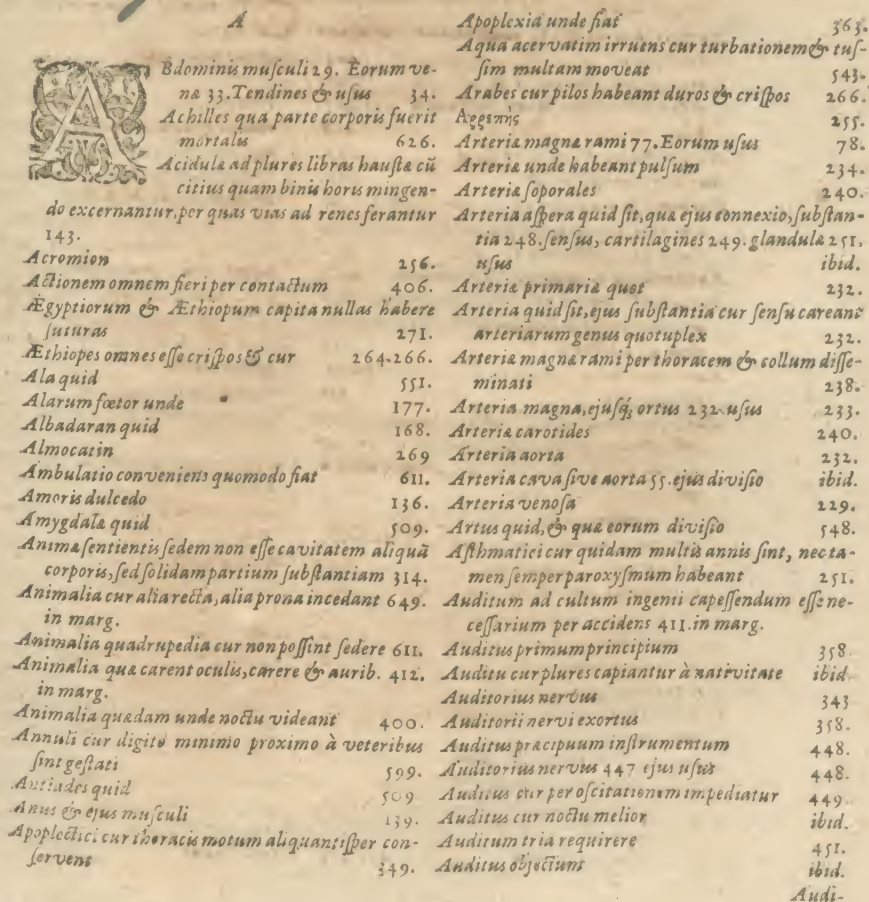 A
ABdominis musculi 29. Eorum ve-
næ 33. Tendines & usus 34.
Achilles qua parte corporis fuerit
mortalis 626.
Acidulæ ad plures libras haustæ cū
citius quam binis horis mingen-
do excernantur, per quas vias ad renes ferantur
143.
Acromion 256.
Actionem omnem fieri per contactum 406.
Ægyptiorum & Æthiopum capita nullas habere
suturas 271.
Æthiopes omnes esse crispos & cur 264.266.
Ala quid 551.
Alarum fœtor unde 177.
Albadaran quid 168.
Almocatin 269
Ambulatio conveniens quomodo fiat 611.
Amoris dulcedo 136.
Amygdalæ quid 509.
Animæ sentientis sedem non esse cavitatem aliquā
corporis, sed solidam partium substantiam 314.
Animalia cur alia recta, alia prona incedant 649.
in marg.
Animalia quadrupedia cur non possint sedere 611.
Animalia quæ carent oculis, carere & aurib. 412.
in marg.
Animalia quædam unde noctu videant 400.
Annuli cur digito minimo proximo à veteribus
sint gestati 599.
Antiades quid 509
Anus & ejus musculi 139.
Apoplectici cur thoracis motum aliquantisper con-
servent 349.
Apoplexia unde fiat 363.
Aqua acervatim irruens cur turbationem & tus-
sim multam moveat 543.
Arabes cur pilos habeant duros & crispos 266.
Αρρεπὴς 255.
Arteriæ magnæ rami 77. Eorum usus 78.
Arteriæ unde habeant pulsum 234.
Arteriæ soporales 240.
Arteria aspera quid sit, quæ ejus connexio, substan-
tia 248. sensus, cartilagines 249. glandulæ 251.
usus ibid.
Arteriæ primariæ quot 232.
Arteria quid sit, ejus substantia cur sensu careant
arteriarum genus quotuplex 232.
Arteriæ magnæ rami per thoracem & collum disse-
minati 238.
Arteria magna, ejusq́; ortus 232. usus 233.
Arteriæ carotides 240.
Arteria aorta 232.
Arteria cava sive aorta 55. ejus divisio ibid.
Arteria venosa 229.
Artus quid, & quæ eorum divisio 548.
Asthmatici cur quidam multis annis sint, nec ta-
men semper paroxysmum habeant 251.
Auditum ad cultum ingenii capessendum esse ne-
cessarium per accidens 411. in marg.
Auditus primum principium 358.
Auditu cur plures capiantur à nativitate ibid.
Auditorius nervus 343
Auditorii nervi exortus 358.
Auditus præcipuum instrumentum 448.
Auditorius nervus 447 ejus usus 448.
Auditus cur per oscitationem impediatur 449.
Auditus cur noctu melior ibid.
Auditum tria requirere 451.
Auditus objectum ibid.
Audi-